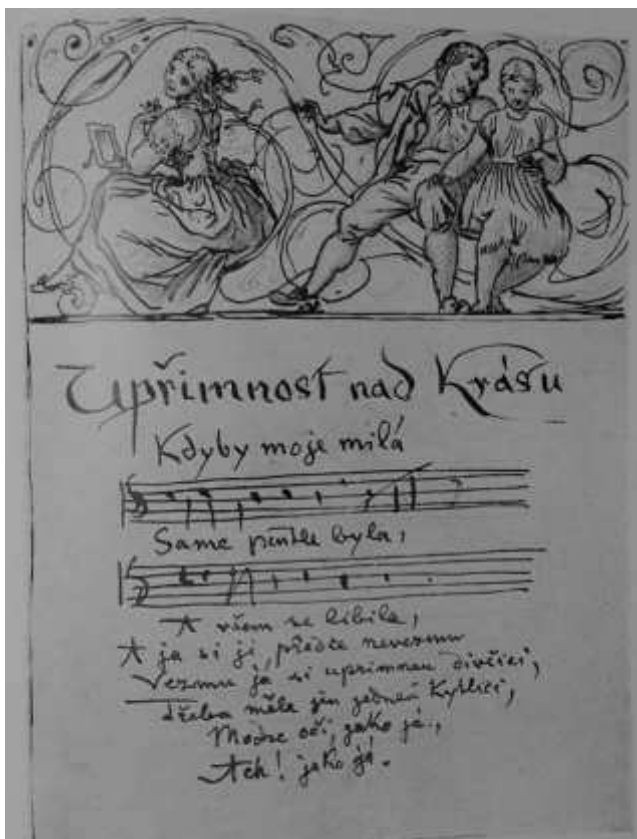 Upřimnost nad Krásu
Kdyby moje milá
Same pentle byla,
A všem se libila,
A ja si ji předce nevezmu
Vezmu ja si uprimnou divčici,
třeba měla jen jednu Kytlici,
Modre oči, jako já,
Ach! jako já.